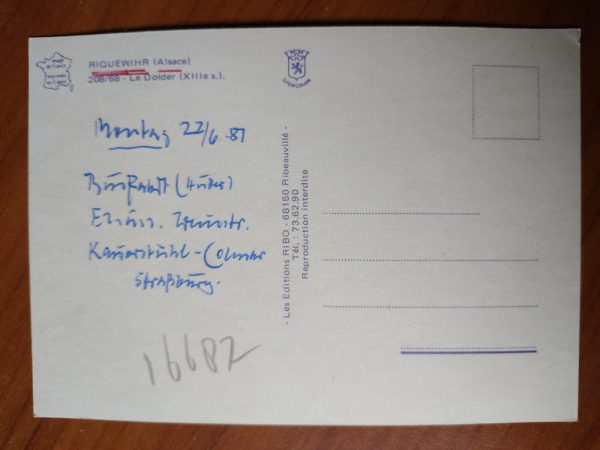 RIQUEWIHR (Alsace)
208/68 - Le Dolder (XIIIe s.).
LYONCOLOR
Montag 22/6.81
Kaiserstuhl - Colmar
Straßburg.
16682
- Les Editions RIBO - 68150 Ribeauvillé -
Tél. : 73.62.90
Reproduction interdite